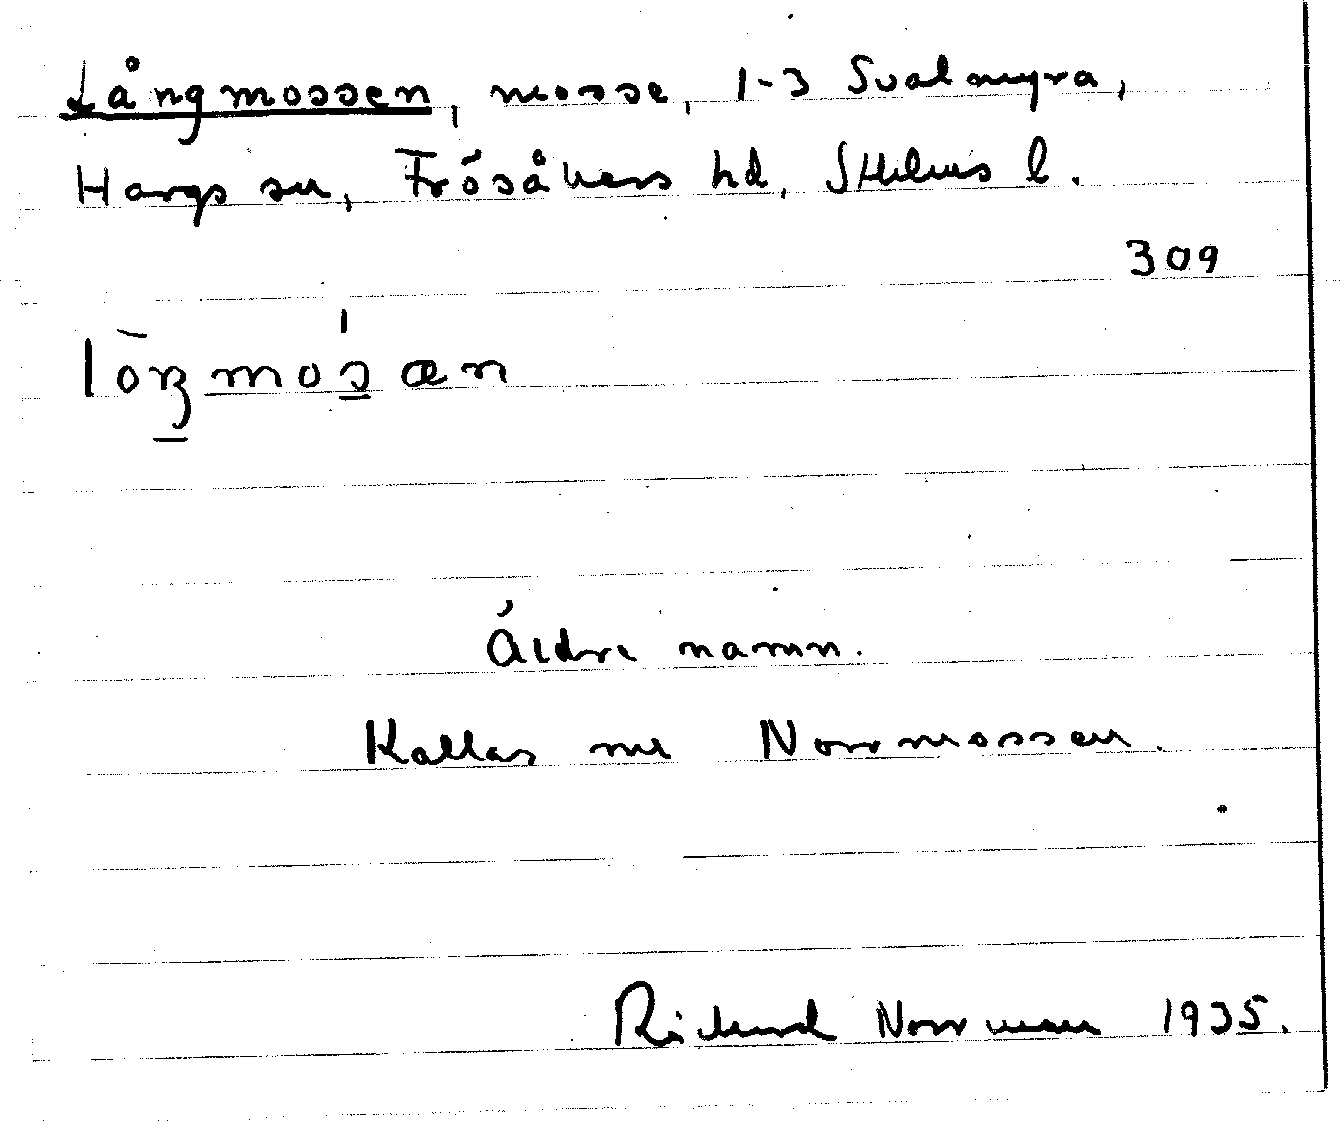 Långmossen, mosse, 1-3 Svalmyra,
Hargs sn, Frösåkers hd, Sthlms l.
309
Äldre namn.
Kallas nu Norrmossen.
Richard Norrman 1935.